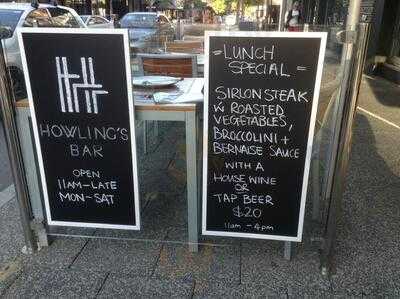 HOWLING'S
BAR
OPEN
11AM-LATE
MON-SAT
=LUNCH
SPECIAL=
SIRLON STEAK
W ROASTED
VEGETABLES,
BROCCOLINI +
BERNAISE SAUCE
WITH A
HOUSE WINE
OR
TAP BEER
$20
11am - 4pm